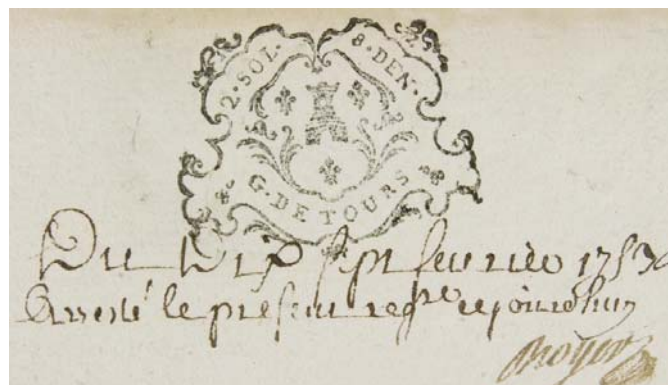 2. SOL. 8. DEN.
G. DE TOURS
Du Dix sept feuvrier 1753
Arresté le present regre cejourdhuy